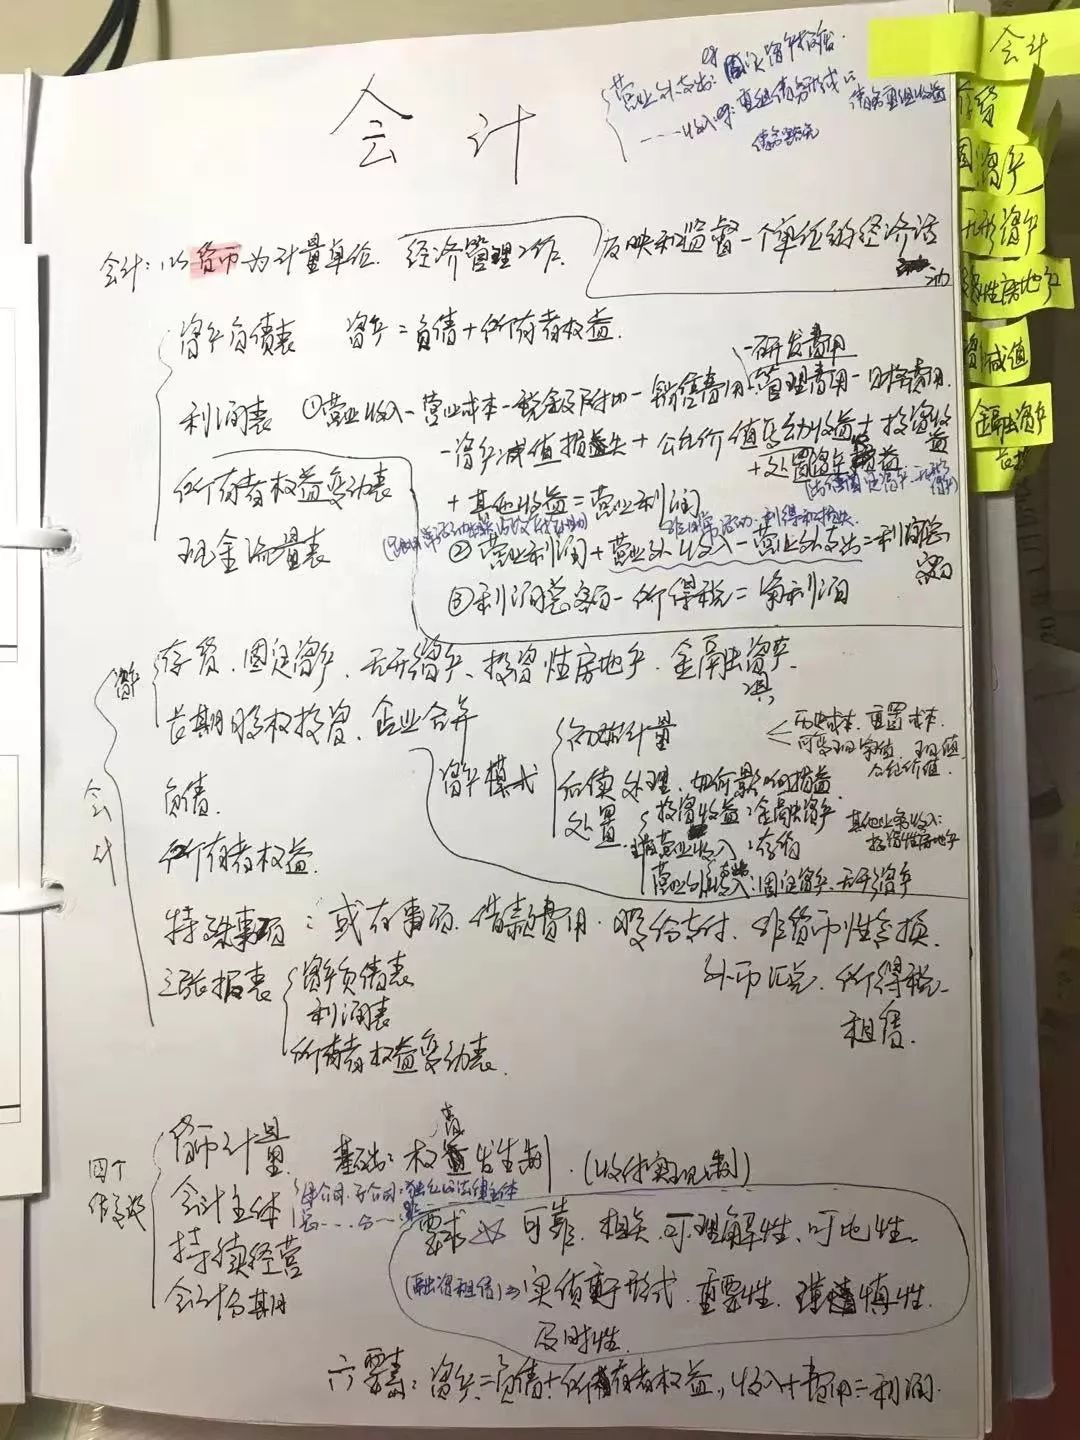 会计
营业外支出: 固定资产报废
收入: 重组债务形成
债务重组收益
会计
存货
固资产
无形资产
投性房地产
资减值
金融资产
会计: 以货币为计量单位. 经济管理工作. 反映和监督一个单位的经济活
动
资产负债表 资产=负债+所有者权益.
-研发费用
利润表 ①营业收入-营业成本-税金及附加-销售费用-管理费用-财务费用.
-资产减值损失+公允价值变动收益+投资收
益
+处置资产损益
所有者权益变动表 +其他收益=营业利润
现金流量表 ②营业利润+营业外收入-营业外支出=利润总
额
③利润总额-所得税=净利润
资产 存货、固定资产、无形资产、投资性房地产、金融资产、
长期股权投资、企业合并
会计
资产模式
初始计量 <历史成本, 重置成本,
可变现净值, 现值,
公允价值.
后续处理, 如何影响损益
处置 投资收益: 金融资产
营业收入: 存货
其他业务收入:
投资性房地产
营业外: 固定资产、无形资产
负债
所有者权益.
特殊事项: 或有事项、借款费用、股份支付、非货币性交换、
外币汇兑、所得税
租赁.
三张报表 资产负债表
利润表
所有者权益变动表.
四个 货币计量 基础: 权责发生制. (收付实现制)
会计主体 母公司, 子公司: 独立的法律主体
持续经营 要求 可靠, 相关, 可理解性、可比性.
会计分期 (融资租赁) 实质重于形式. 重要性. 谨慎性.
及时性.
六要素: 资产=负债+所有者权益, 收入+费用=利润.